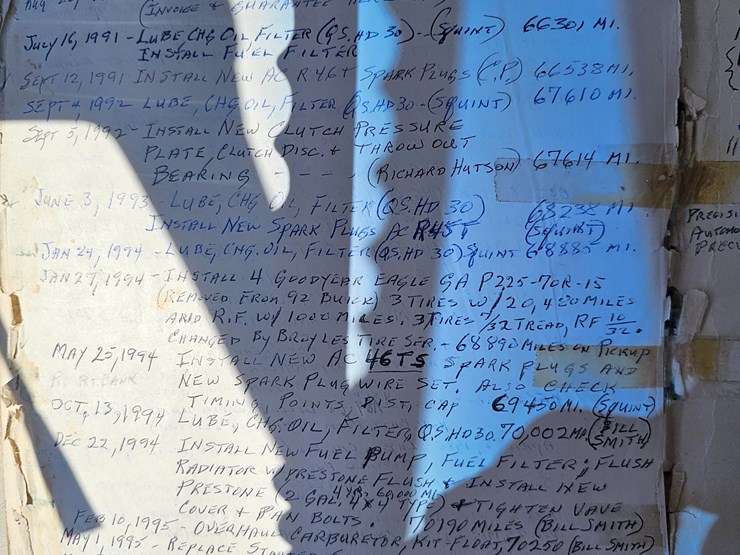 (INVOICE & GUARANTEE
JULY 16, 1991 - LUBE CHG OIL FILTER (QS. HD 30) - (SQUINT) 66301 MI.
INSTALL FUEL FILTER
SEPT 12, 1991 INSTALL NEW AC R46T SPARK PLUGS (C.P.) 66538 MI.
SEPT 4, 1992 LUBE, CHG OIL, FILTER (QS. HD 30 - (SQUINT) 67610 MI.
SEPT 5, 1992 - INSTALL NEW CLUTCH PRESSURE
PLATE, CLUTCH DISC. & THROW OUT
BEARING - - - - (RICHARD HUTSON) 67614 MI.
JUNE 3, 1993 - LUBE, CHG OIL, FILTER (QS. HD 30) 68238 MI
INSTALL NEW SPARK PLUGS AC R45T (SQUINT)
JAN 24, 1994 - LUBE, CHG. OIL, FILTER (QS. HD 30) SQUINT 68885 MI.
JAN 27, 1994 - INSTALL 4 GOODYEAR EAGLE GA P225-70R-15
(REMOVED FROM 92 BUICK) 3 TIRES W/ 20,480 MILES
AND R.F. W/ 1000 MILES. 3 TIRES /32 TREAD, RF 10/32.
CHANGED BY BROYLES TIRE SER. - 68890 MILES ON PICKUP
MAY 25, 1994 INSTALL NEW AC 46TS SPARK PLUGS AND
NEW SPARK PLUG WIRE SET. ALSO CHECK
TIMING, POINTS, DIST. CAP 69450 MI. (SQUINT)
OCT, 13, 1994 LUBE, CHG. OIL, FILTER, Q.S. HD 30, 70,002 MI. (BILL SMITH)
DEC 22, 1994 INSTALL NEW FUEL PUMP, FUEL FILTER; FLUSH
RADIATOR W/ PRESTONE FLUSH & INSTALL NEW
4 YRS 60,000 MI
PRESTONE (2 GAL. 4 X 4 TYPE) & TIGHTEN VAVE
COVER & PAN BOLTS. 70190 MILES (BILL SMITH)
FEB 10, 1995 - OVERHAUL CARBURETOR, KIT-FLOAT, 70250 (BILL SMITH)
MAY 1, 1995 - REPLACE